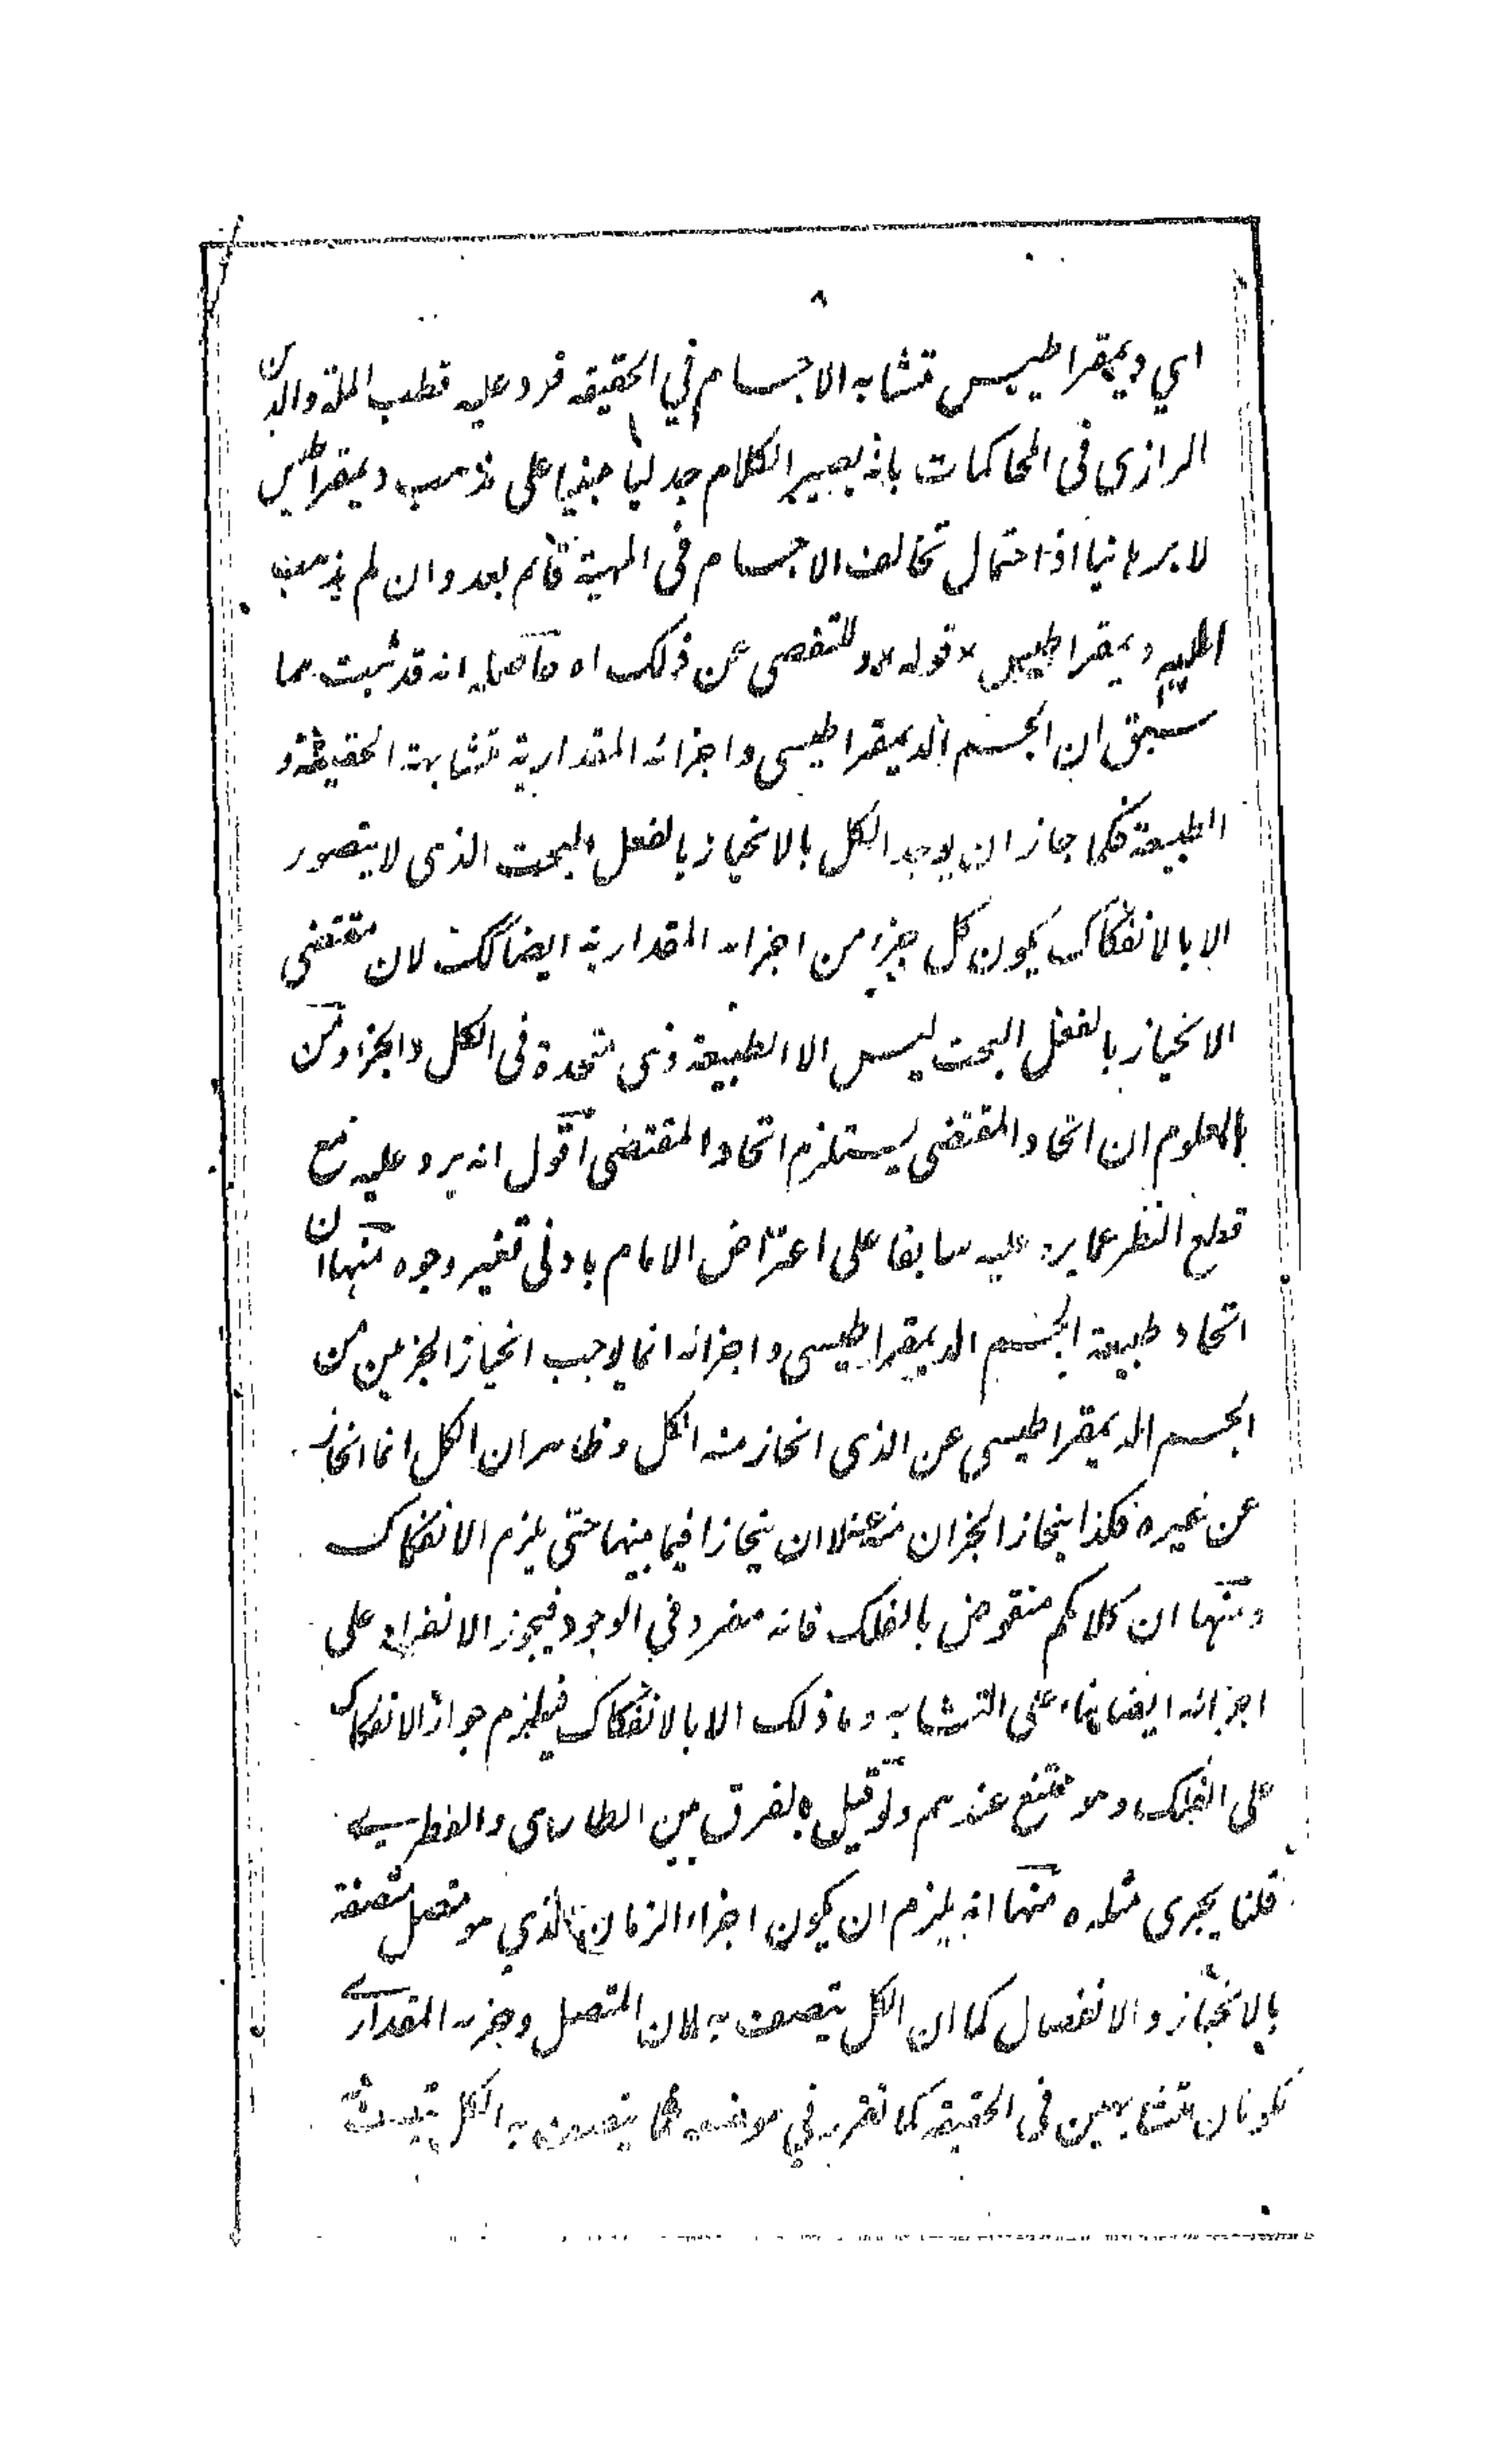 ٨
اي ديمقراطيس تشابه الاجسام في الحقيقه فرد عليه قطب الملة والدين
الرازى فى المحاكمات بانه يصير الكلام جدليا مبنيا على مذهب ديمقراطيس
لا برهانيا اذ احتمال تخالف الاجسام فى المهية قائم بعد وان لم يذهب
اليه ديمقراطيس * قوله * وللتفصى عن ذلك اه حاصله انه قد ثبت مما
سبق ان الجسم الديمقراطيسى واجزائه المقدارية متشابهة الحقيقة و
الطبيعة فكما جاز ان يوجد الكل بالانحياز بالفعل البحت الذى لا يتصور
الا بالانفكاك يكون كل جزء من اجزائه المقدارية ايضا كك لان مقتضى
الانحياز بالفعل البحت ليس الا الطبيعة وهى متحدة فى الكل والجزء ومن
المعلوم ان اتحاد المقتضى يستلزم اتحاد المقتضى اقول انه يرد عليه مع
قطع النظر عما يرد عليه سابقا على اعتراض الامام بادنى تغير وجوه منها ان
اتحاد طبيعة الجسم الديمقراطيسى واجزائه انما يوجب انحياز الجزئين من
الجسم الديمقراطيسى عن الذى انحاز منه الكل وظاهر ان الكل انما انحاز
عن غيره فكذا ينحاز الجزان منه لا ان ينحازا فيما بينهما حتى يلزم الانفكاك
ومنها ان كلامكم منقوض بالفلك فانه منفرد في الوجود فيجوز الانفراد على
اجزائه ايضا بناء على التشابه وما ذلك الا بالانفكاك فيلزم جواز الانفكاك
على الفلك وهو ممتنع عندهم ولو قيل بالفرق بين الطارى والفطري
قلنا يجرى مثله ه منها انه يلزم ان يكون اجزاء الزمان الذي هو متصل متصفة
بالانحياز والانفصال كما ان الكل يتصف به لان المتصل وجزءه المقداري
يكونان متشابهين فى الحقيقة كما تقرر في موضعه فما يتصف به الكل